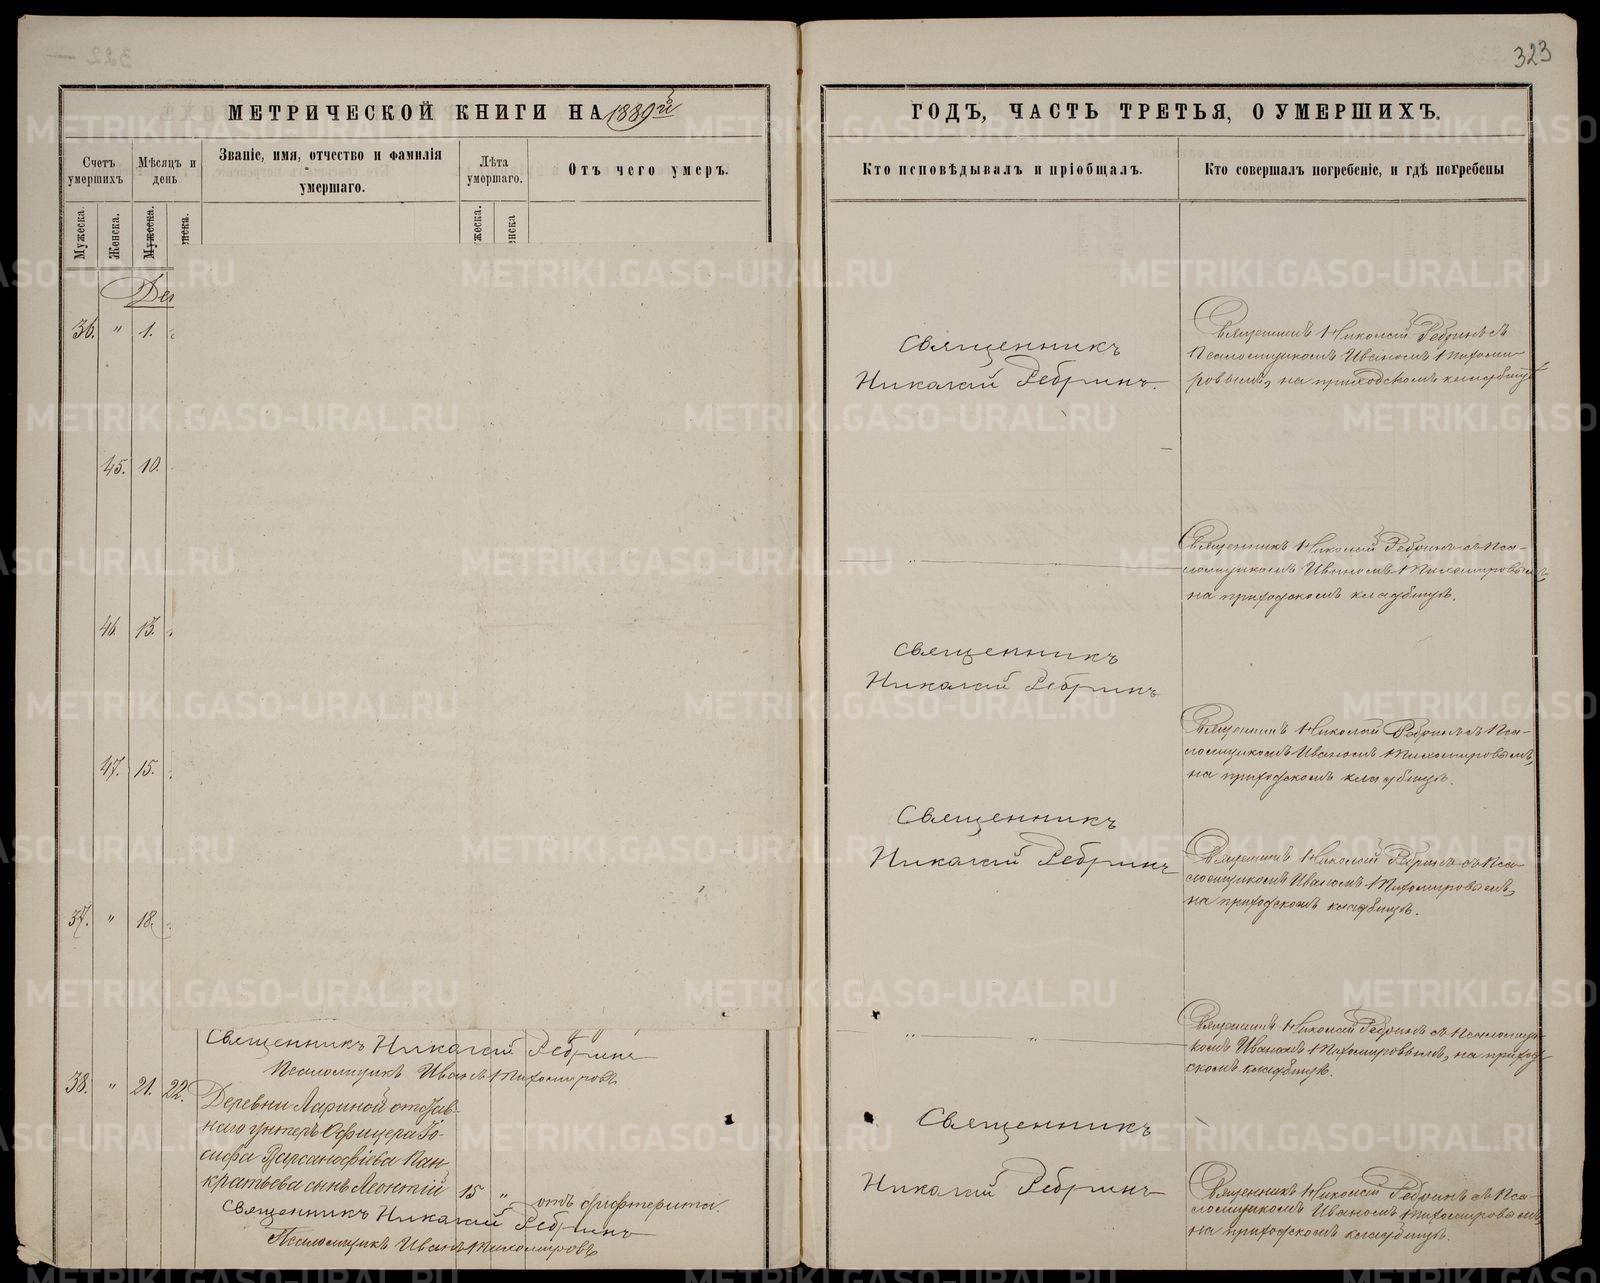 323
МЕТРИЧЕСКОЙ КНИГИ НА 1889й
Счетъ умершихъ
Мѣсяцъ и день
Званіе, имя, отчество и фамилія умершаго.
Лѣта умершаго.
Отъ чего умеръ.
Мужеска.
Женска.
Мужеска.
36. " 1.
45. 10.
46. 13.
47. 15.
37. " 18.
Священникъ Николай Ребринъ
Псаломщикъ Иванъ Тихомировъ
38. " 21. 22.
Деревни Лариной отстав-
наго унтеръ офицера Іо-
сифа Варсанофіева Пан-
кратьева сынъ Леонтій 15 " отъ дифтерита.
Священникъ Николай Ребринъ
Псаломщикъ Иванъ Тихомировъ
ГОДЪ, ЧАСТЬ ТРЕТЬЯ, О УМЕРШИХЪ.
Кто исповѣдывалъ и пріобщалъ.
Кто совершалъ погребеніе, и гдѣ погребены
Священникъ
Николай Ребринъ.
Священникъ Николай Ребринъ съ
Псаломщикомъ Иваномъ Тихоми-
ровымъ, на приходскомъ кладбищѣ
Священникъ Николай Ребринъ съ Пса-
ломщикомъ Иваномъ Тихомировымъ
на приходскомъ кладбищѣ.
Священникъ
Николай Ребринъ
Священникъ Николай Ребринъ съ Пса-
ломщикомъ Иваномъ Тихомировымъ,
на приходскомъ кладбищѣ.
Священникъ
Николай Ребринъ
Священникъ Николай Ребринъ съ Пса-
ломщикомъ Иваномъ Тихомировымъ,
на приходскомъ кладбищѣ.
Священникъ Николай Ребринъ съ Псаломщи-
комъ Иваномъ Тихомировымъ, на приход-
скомъ кладбищѣ.
Священникъ
Николай Ребринъ
Священникъ Николай Ребринъ съ Пса-
ломщикомъ Иваномъ Тихомировымъ,
на приходскомъ кладбищѣ.
METRIKI.GASO-URAL.RU